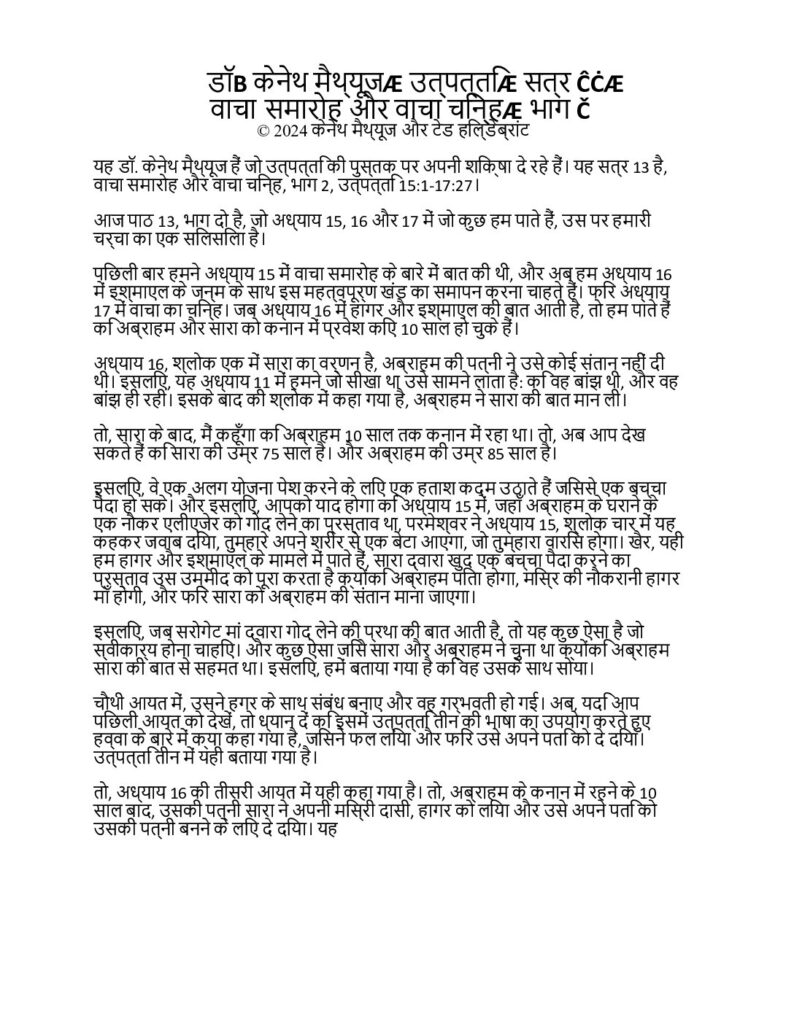 डॉB केनेथ मैथ्यूजÆ उत्पत्तिÆ सत्र ĈĊÆ
वाचा समारोह और वाचा चिन्हÆ भाग Č
© 2024 केनेथ मैथ्यूज और टेड हिल्डेब्रांट
यह डॉ. केनेथ मैथ्यूज हैं जो उत्पत्ति की पुस्तक पर अपनी शिक्षा दे रहे हैं। यह सत्र 13 है,
वाचा समारोह और वाचा चिन्ह, भाग 2, उत्पत्ति 15:1-17:27।
आज पाठ 13, भाग दो है, जो अध्याय 15, 16 और 17 में जो कुछ हम पाते हैं, उस पर हमारी
चर्चा का एक सिलसिला है।
पिछली बार हमने अध्याय 15 में वाचा समारोह के बारे में बात की थी, और अब हम अध्याय 16
में इश्माएल के जन्म के साथ इस महत्वपूर्ण खंड का समापन करना चाहते हैं। फिर अध्याय
17 में वाचा का चिन्ह। जब अध्याय 16 में हागर और इश्माएल की बात आती है, तो हम पाते हैं
कि अब्राहम और सारा को कनान में प्रवेश किए 10 साल हो चुके हैं।
अध्याय 16, श्लोक एक में सारा का वर्णन है, अब्राहम की पत्नी ने उसे कोई संतान नहीं दी
थी। इसलिए, यह अध्याय 11 में हमने जो सीखा था उसे सामने लाता है: कि वह बांझ थी, और वह
बांझ ही रही। इसके बाद की श्लोक में कहा गया है, अब्राहम ने सारा की बात मान ली।
तो, सारा के बाद, मैं कहूँगा कि अब्राहम 10 साल तक कनान में रहा था। तो, अब आप देख
सकते हैं कि सारा की उम्र 75 साल है। और अब्राहम की उम्र 85 साल है।
इसलिए, वे एक अलग योजना पेश करने के लिए एक हताश कदम उठाते हैं जिससे एक बच्चा
पैदा हो सके। और इसलिए, आपको याद होगा कि अध्याय 15 में, जहाँ अब्राहम के घराने के
एक नौकर एलीएजेर को गोद लेने का प्रस्ताव था, परमेश्वर ने अध्याय 15, श्लोक चार में यह
कहकर जवाब दिया, तुम्हारे अपने शरीर से एक बेटा आएगा, जो तुम्हारा वारिस होगा। खैर, यही
हम हागर और इश्माएल के मामले में पाते हैं, सारा द्वारा खुद एक बच्चा पैदा करने का
प्रस्ताव उस उम्मीद को पूरा करता है क्योंकि अब्राहम पिता होगा, मिस्र की नौकरानी हागर
माँ होगी, और फिर सारा को अब्राहम की संतान माना जाएगा।
इसलिए, जब सरोगेट मां द्वारा गोद लेने की प्रथा की बात आती है, तो यह कुछ ऐसा है जो
स्वीकार्य होना चाहिए। और कुछ ऐसा जिसे सारा और अब्राहम ने चुना था क्योंकि अब्राहम
सारा की बात से सहमत था। इसलिए, हमें बताया गया है कि वह उसके साथ सोया।
चौथी आयत में, उसने हगर के साथ संबंध बनाए और वह गर्भवती हो गई। अब, यदि आप
पिछली आयत को देखें, तो ध्यान दें कि इसमें उत्पत्ति तीन की भाषा का उपयोग करते हुए
हव्वा के बारे में क्या कहा गया है, जिसने फल लिया और फिर उसे अपने पति को दे दिया।
उत्पत्ति तीन में यही बताया गया है।
तो, अध्याय 16 की तीसरी आयत में यही कहा गया है। तो, अब्राहम के कनान में रहने के 10
साल बाद, उसकी पत्नी सारा ने अपनी मिस्री दासी, हागर को लिया और उसे अपने पति को
उसकी पत्नी बनने के लिए दे दिया। यह